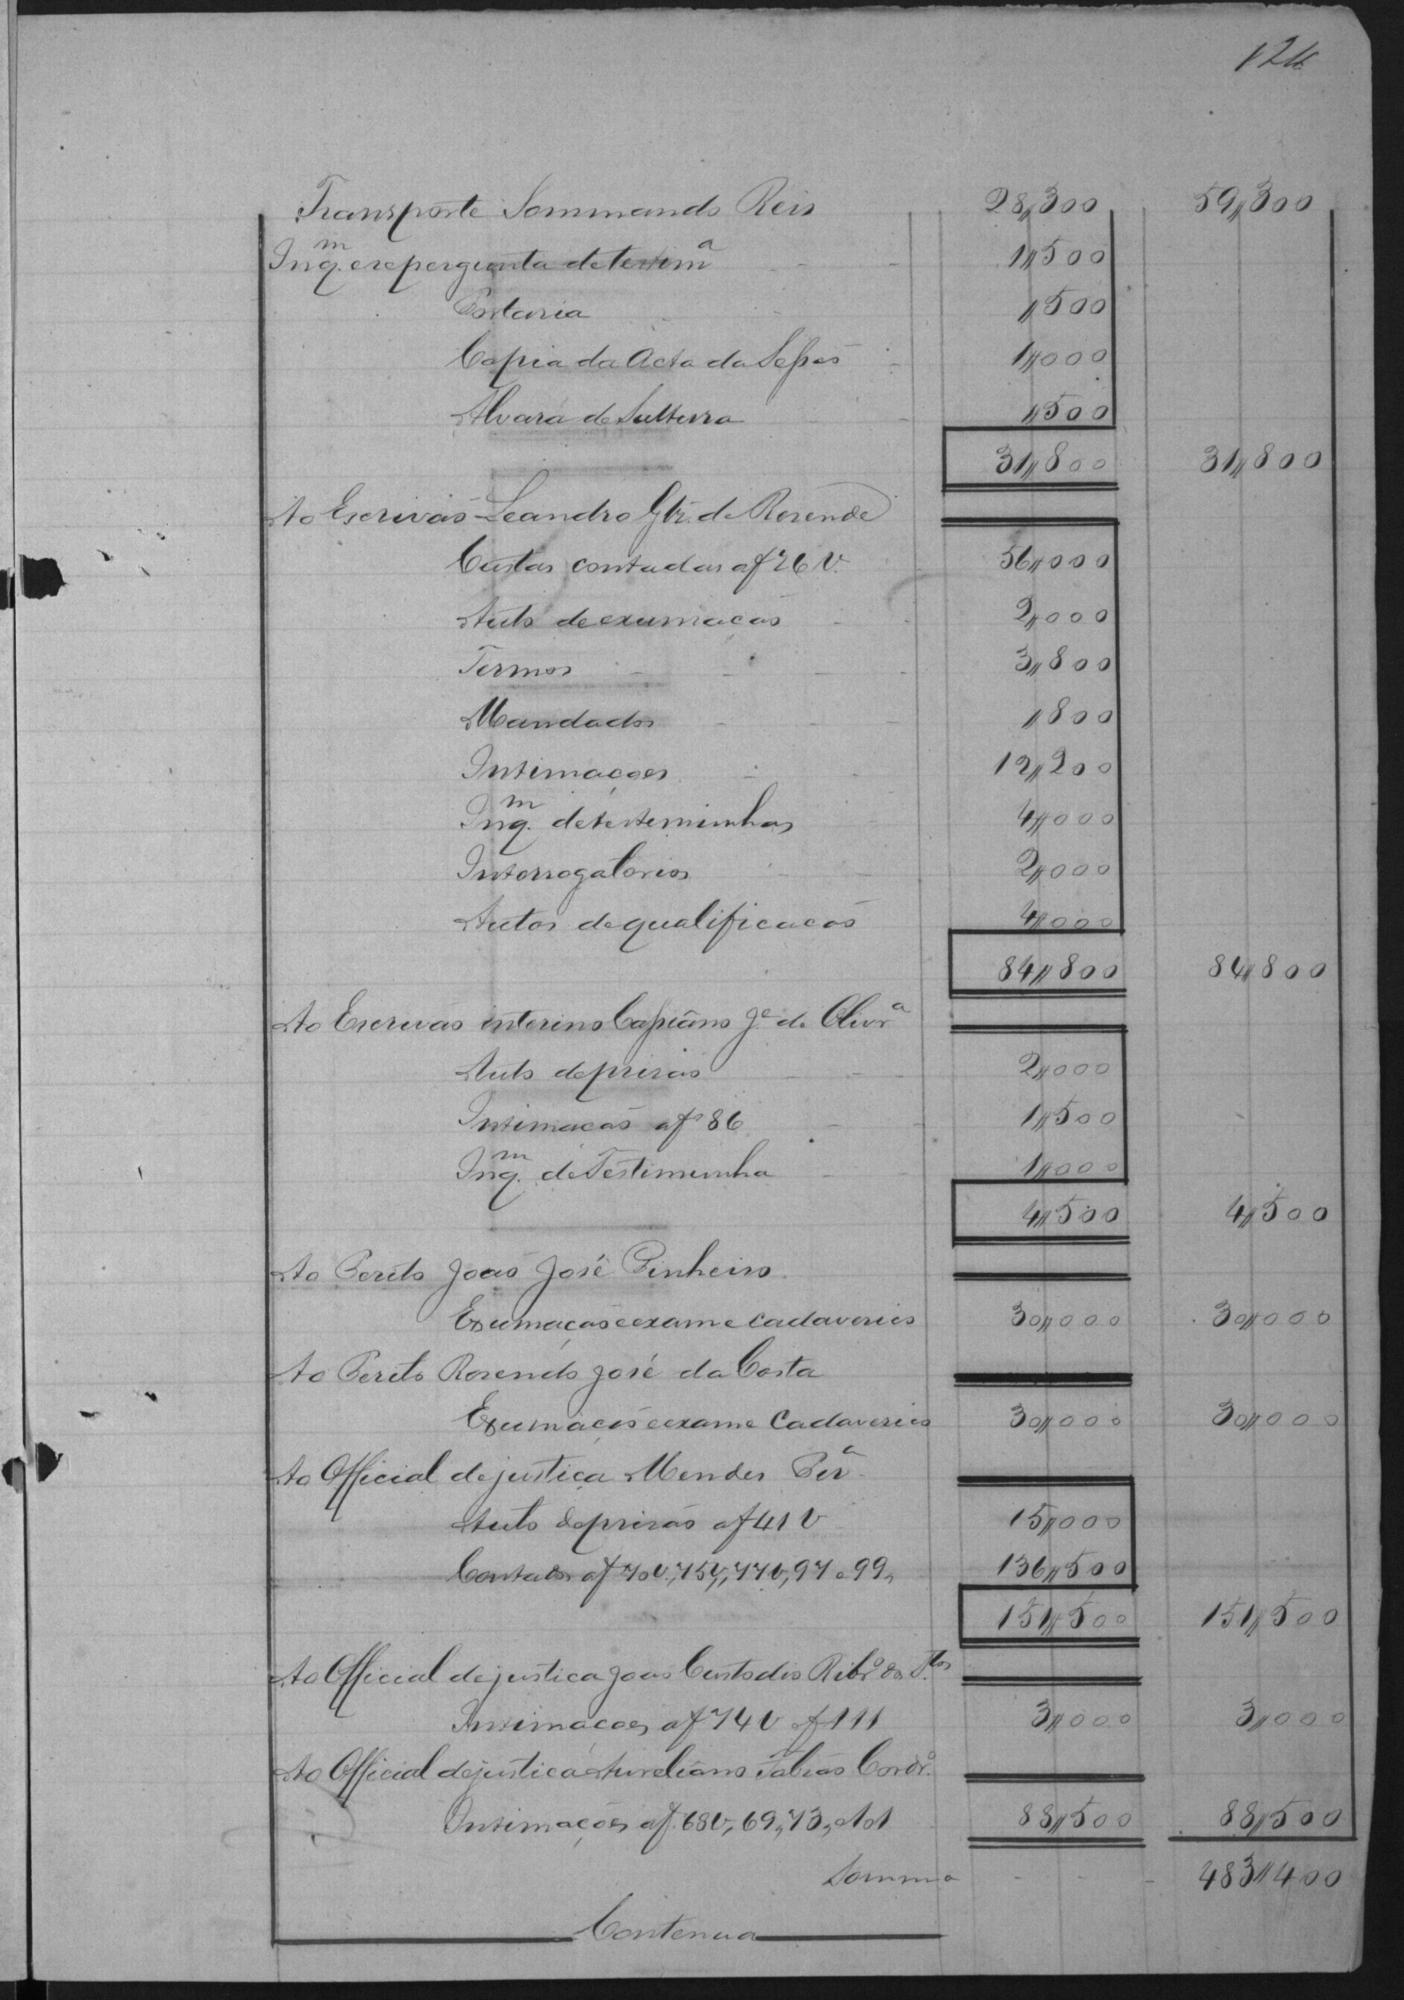 124
Transporte Sommando Reis 28,,300 59,,300
Inq.m e repergunta de testim.a 1,,500
Portaria 1,,500
Copia da Acta da Sessaõ 1,,000
Alvará de Solturra ,,500
31,,800 31,,800
Ao Escrivaõ Leandro Glz. de Resende
Custas contadas af 26 V. 56,,000
Auto de exumacaõ 2,,000
Termos 3,,800
Mandados ,,800
Intimaçoes 12,,200
Inq.m de testeminhas 4,,000
Interrogatorios 2,,000
Autos de qualificacaõ 4,,000
84,,800 84,,800
Ao Escrivaõ interino Cassiano J.e de Olivr.a
Auto de prisaõ 2,,000
Intimacaõ af 86 1,,500
Inq.m de Testimunha 1,,000
4,,500 4,,500
Ao Perito Joaõ José Pinheiro
Exumaçaõ e exame cadaverico 30,,000 30,,000
Ao Perito Rosendo José da Costa
Exumaçaõ e exame Cadaverico 30,,000 30,,000
Ao Official de justiça Mendes Per.a
Auto de prisaõ af 41 V 15,,000
Contadas af 70V, 75V, 77V, 97 e 99, 136,,500
151,,500 151,,500
Ao Official de justica Joaõ Custodio Ribr.o dos
Intimaçoes af 74 V af 111 3,,000 3,,000
Ao Official de justica Aureliano Tabias Cordr.o
Intimaçoes af. 68V, 69, 73, 101 88,,500 88,,500
Somma 483,,400
Contenua